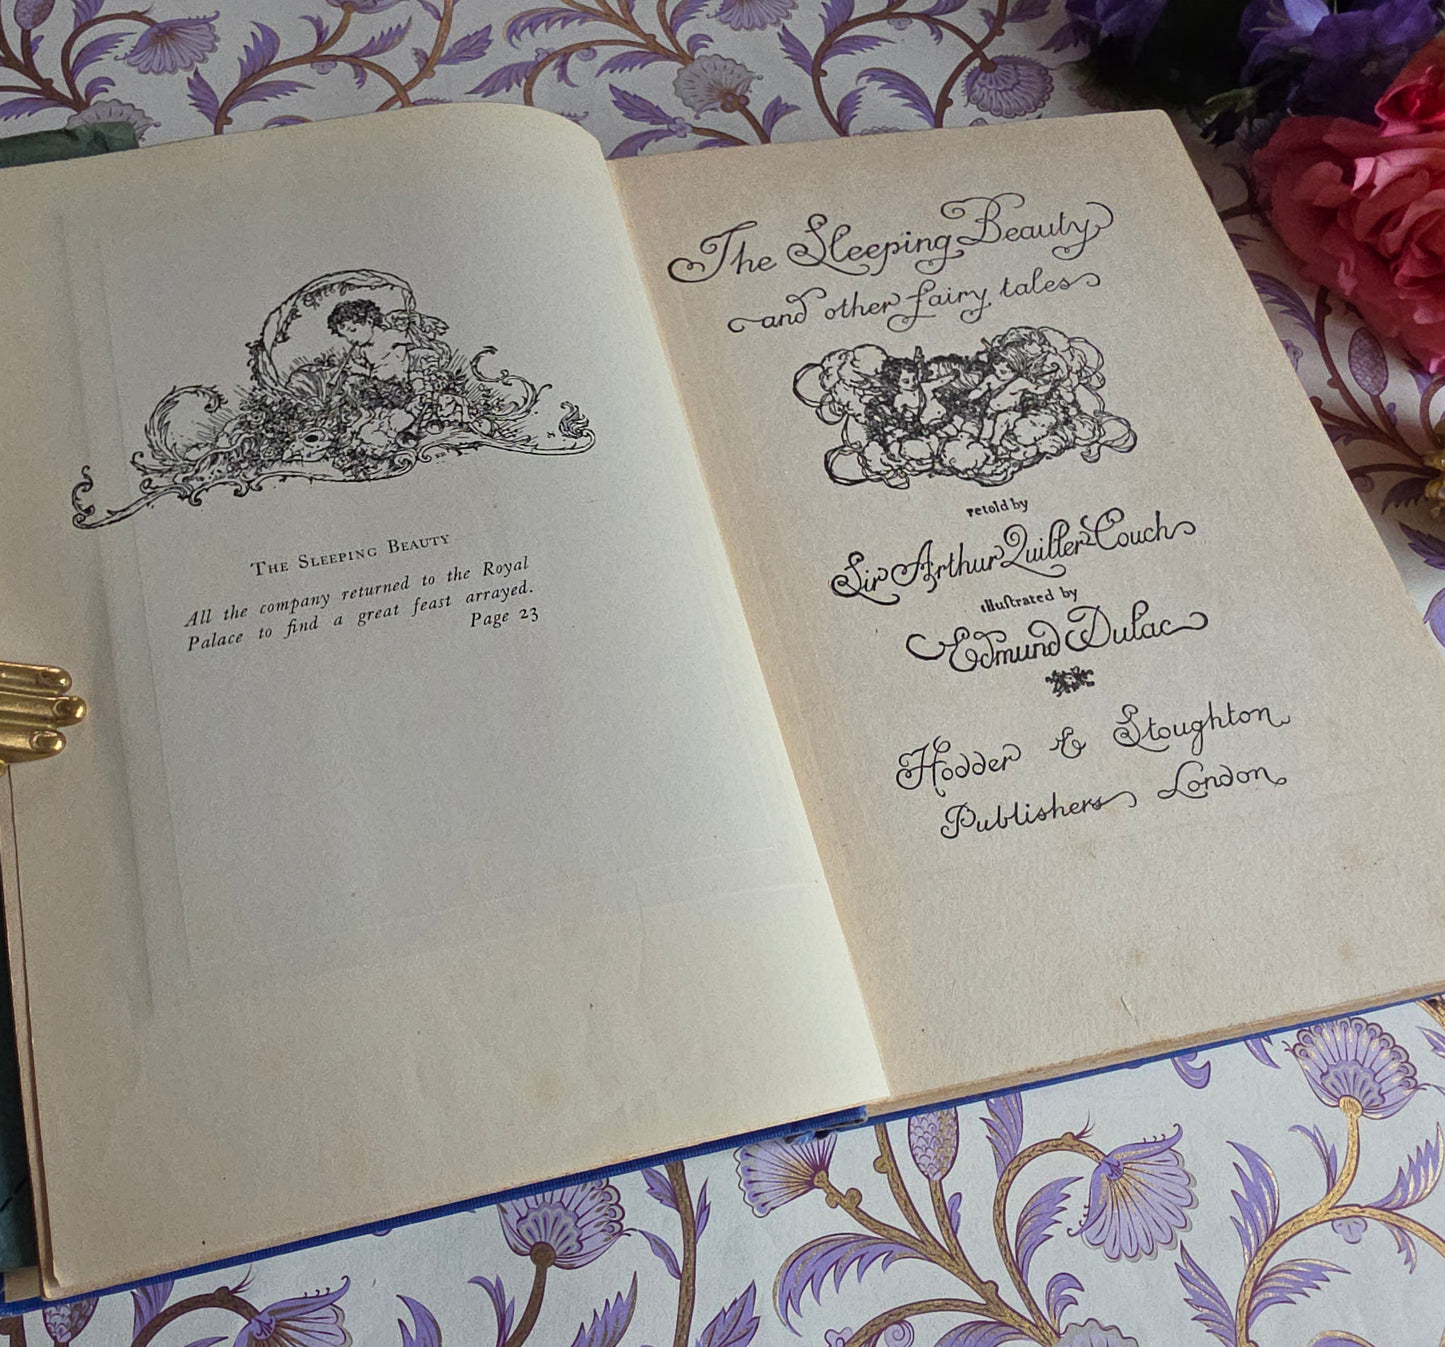 The Sleeping Beauty
All the company returned to the Royal
Palace to find a great feast arrayed.
Page 23
The Sleeping Beauty
and other fairy tales
retold by
Sir Arthur Quiller-Couch
illustrated by
Edmund Dulac
Hodder & Stoughton
Publishers London